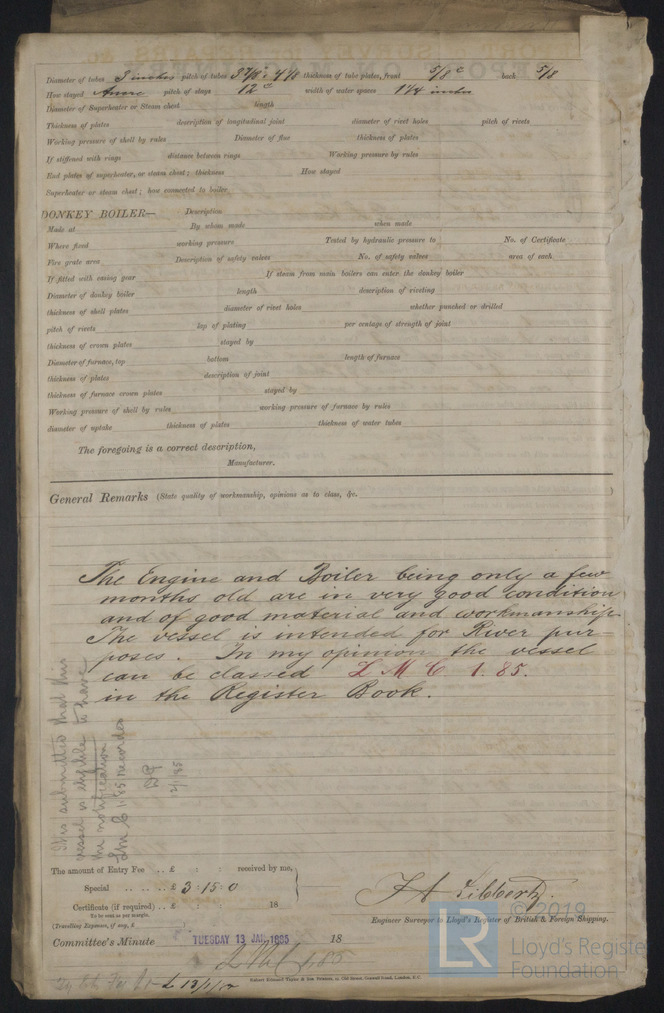 Diameter of tubes 3 inches pitch of tubes 3 7/8 & 4 1/8 thickness of tube plates, front 5/8 back 5/8
How stayed pitch of stays 12 width of water spaces 1 1/4 inches
Diameter of Superheater or Steam chest length
Thickness of plates description of longitudinal joint diameter of rivet holes pitch of rivets
Working pressure of shell by rules Diameter of flue thickness of plates
If stiffened with rings distance between rings Working pressure by rules
End plates of superheater, or steam chest; thickness How stayed
Superheater or steam chest; how connected to boiler
DONKEY BOILER— Description
Made at By whom made when made
Where fixed working pressure Tested by hydraulic pressure to No. of Certificate
Fire grate area Description of safety valves No. of safety valves area of each
If fitted with easing gear If steam from main boilers can enter the donkey boiler
Diameter of donkey boiler length description of riveting
thickness of shell plates diameter of rivet holes whether punched or drilled
pitch of rivets lap of plating per centage of strength of joint
thickness of crown plates stayed by
Diameter of furnace, top bottom length of furnace
thickness of plates description of joint
thickness of furnace crown plates stayed by
Working pressure of shell by rules working pressure of furnace by rules
diameter of uptake thickness of plates thickness of water tubes
The foregoing is a correct description,
Manufacturer.
General Remarks (State quality of workmanship, opinions as to class, &c. )
The Engine and Boiler being only a few
months old are in very good condition
and of good material and workmanship.
The vessel is intended for River pur-
poses. In my opinion the vessel
can be classed L M C 1. 85.
in the Register Book.
It is submitted that this
vessel is eligible to have
the notification
LMC 1.85 recorded
12/1/85
The amount of Entry Fee .. £ : : received by me,
Special .. .. .. £ 3 : 15 : 0
Certificate (if required) .. £ : : 18
To be sent as per margin.
(Travelling Expenses, if any, £
Engineer Surveyor to Lloyd's Register of British & Foreign Shipping.
Committee's Minute TUESDAY 13 JAN. 1885 18
LMC 1.85
© 2019
LR
Lloyd's Register
Foundation